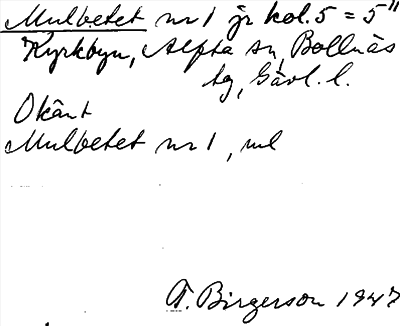 Mulbetet nr 1 jr kol. 5 = 5"
Kyrkbyn, Alfta sn, Bollnäs
tg, Gävl. l.
Okänt
Mulbetet nr 1, ml
T. Birgerson 1947